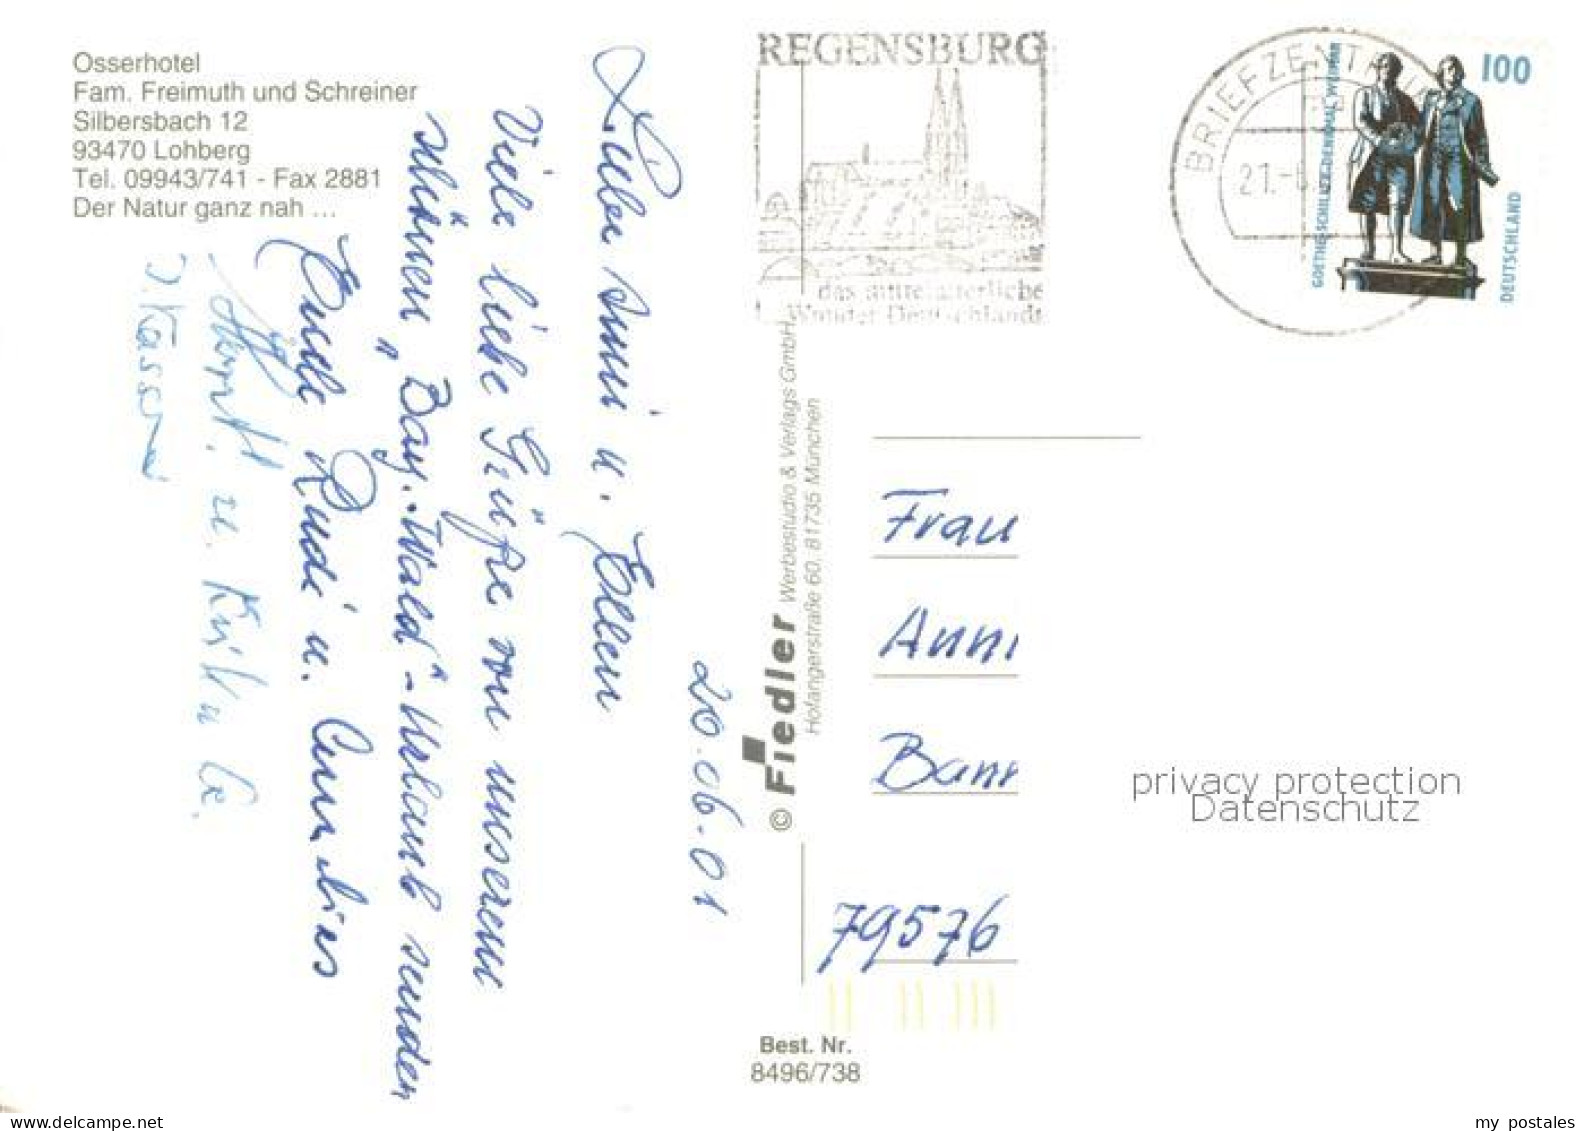 Osserhotel
Fam. Freimuth und Schreiner
Silbersbach 12
93470 Lohberg
Tel. 09943/741 - Fax 2881
Der Natur ganz nah ...
20.06.01
u. Ellen
Viele liebe Grüße von unserem
schönen „Bay.-Wald“-Urlaub senden
Euch Rudi u. Annelies
u.
REGENSBURG
das mittelalterliche
Wunder Deutschlands
BRIEFZENTRUM
21.-6
100
GOETHE-SCHILLER-DENKMAL WEIMAR
DEUTSCHLAND
© Fiedler Werbestudio & Verlags GmbH,
Hofangerstraße 60, 81735 München
Frau
Anni
Bann
79576
privacy protection
Datenschutz
Best. Nr.
8496/738
my postales